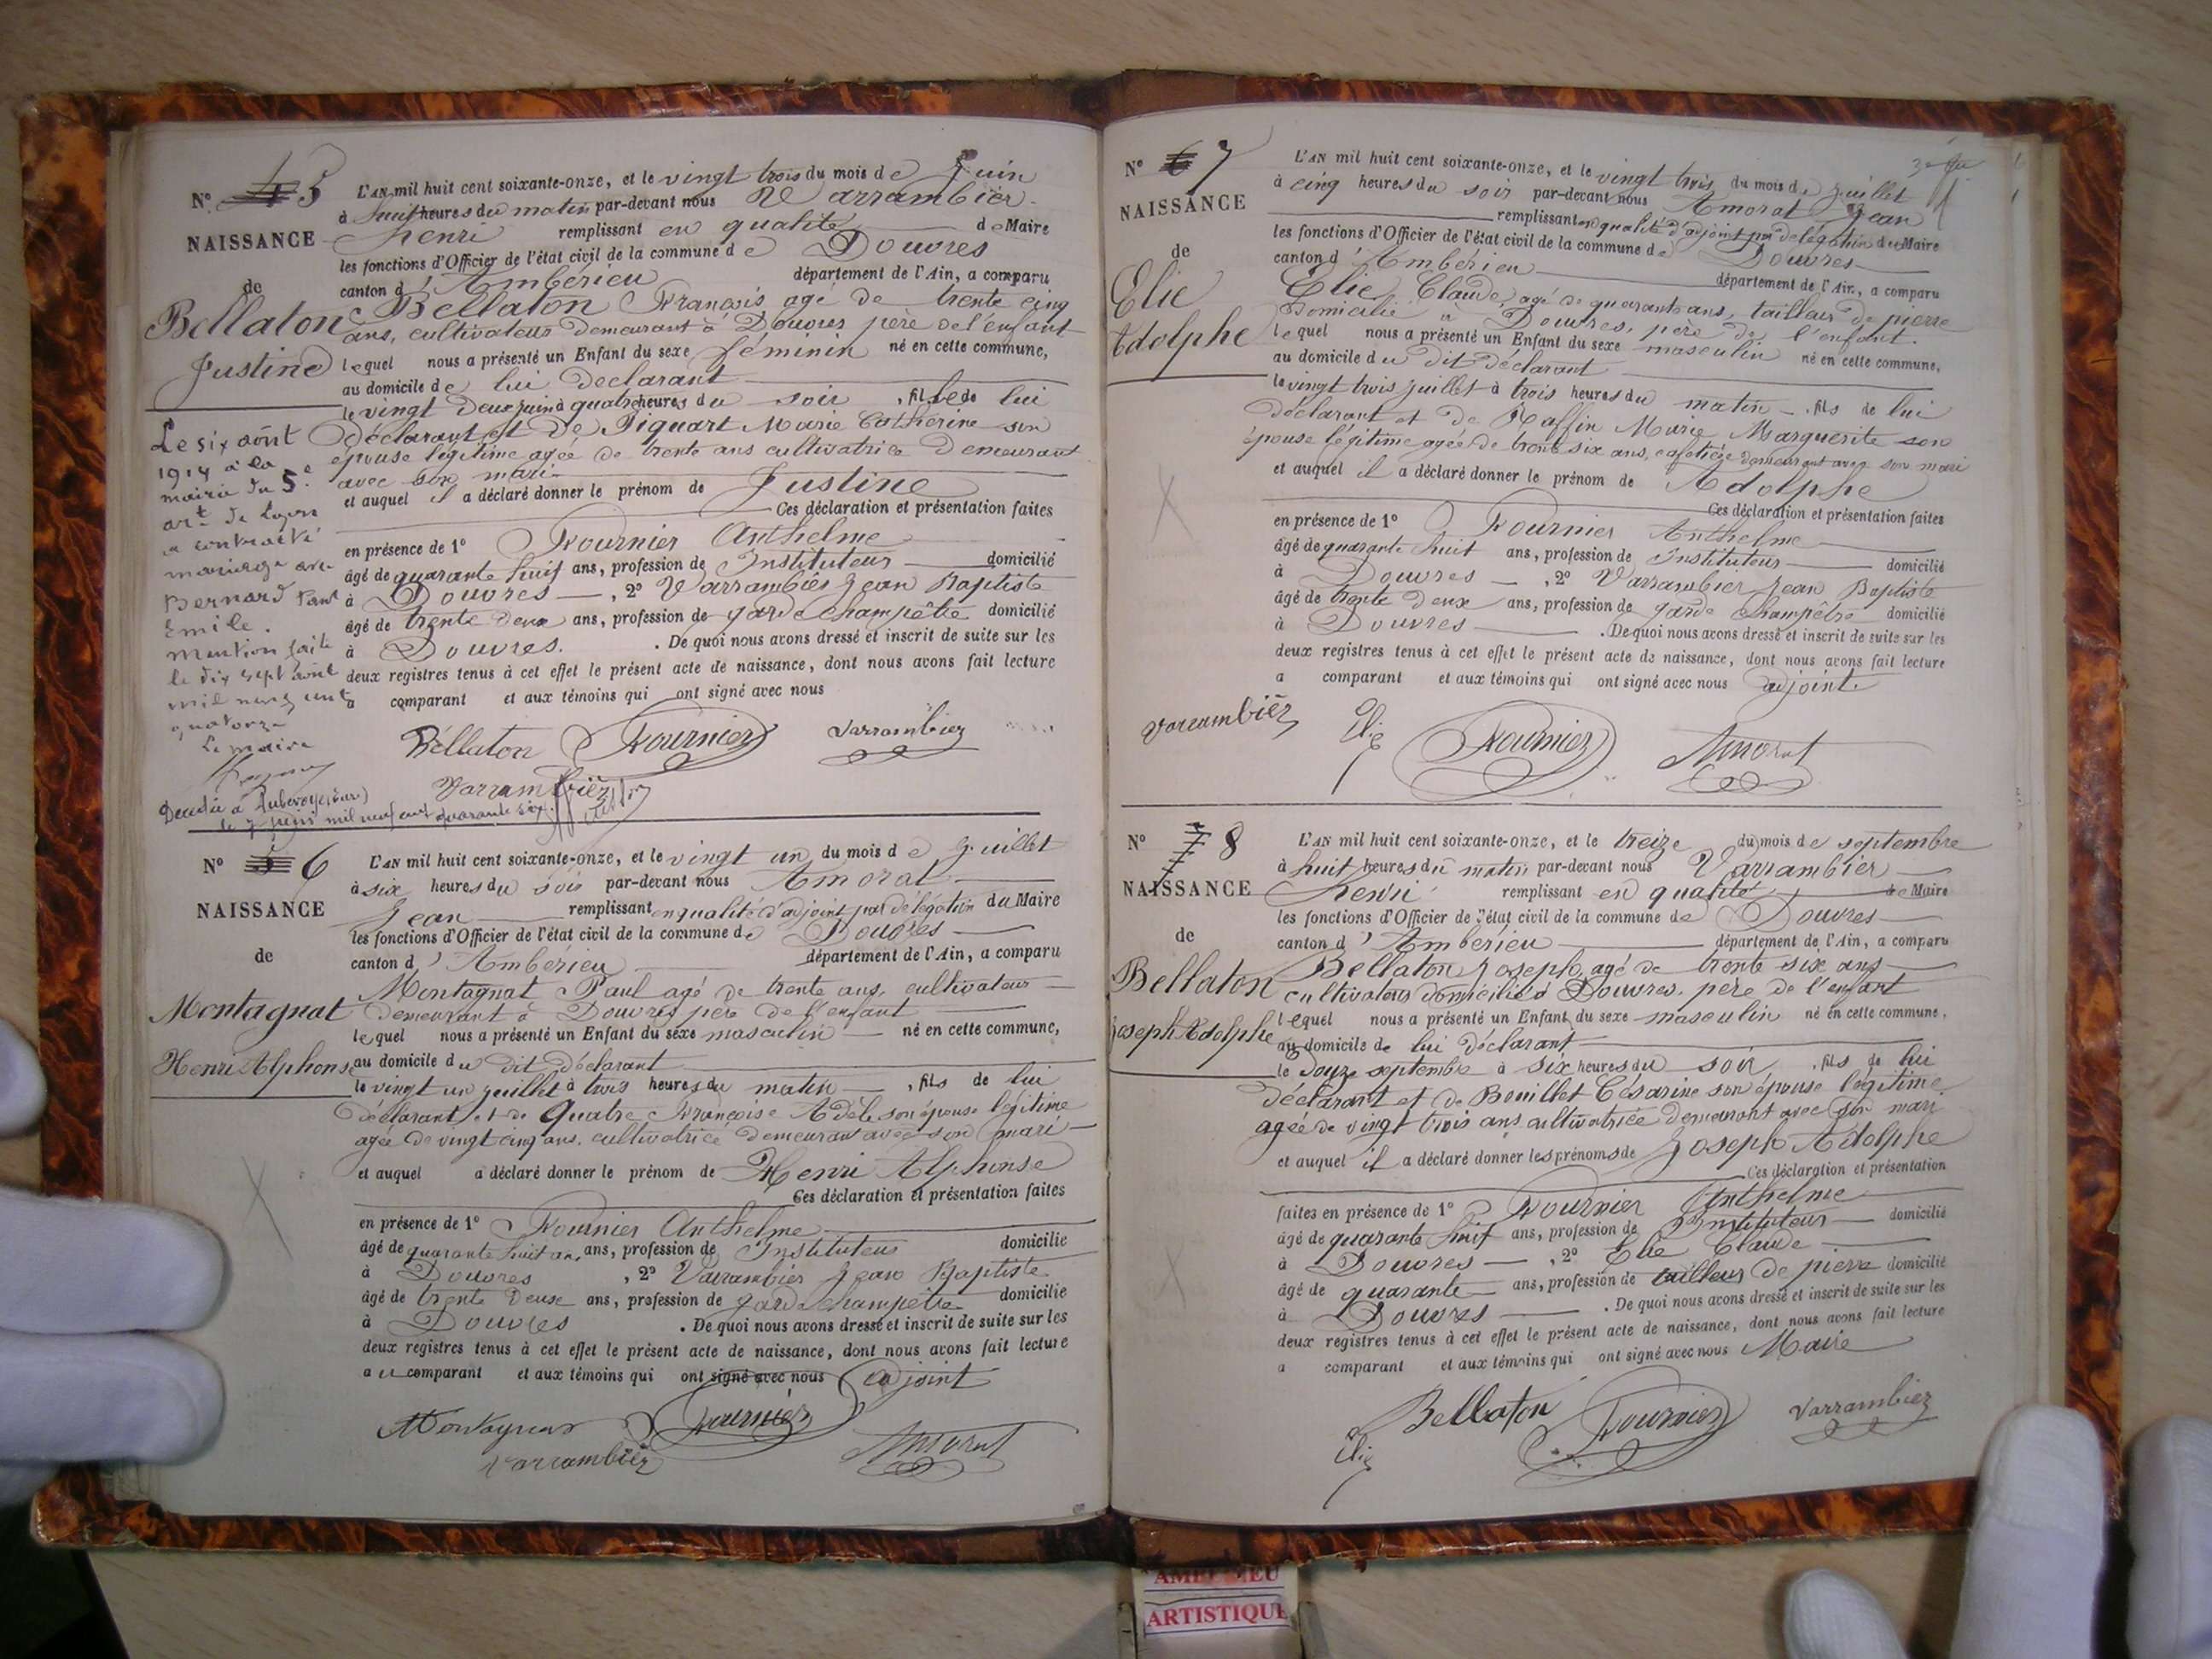 N° 4 5
NAISSANCE
de
Bellaton
Justine
Le six août
1914 à la
mairie du 5e
art de Lyon
a contracté
mariage avec
Bernard Paul
Emile.
mention faite
le dix sept août
mil neuf cent
quatorze
Le maire
Décédée à
le 7 juin mil neuf cent quarante six
L'AN mil huit cent soixante-onze, et le vingt trois du mois de Juin
à huit heures du matin par-devant nous Varrambier
Henri remplissant en qualité de Maire
les fonctions d'Officier de l'état civil de la commune de Douvres
canton d'Ambérieu département de l'Ain, a comparu
Bellaton François agé de trente cinq
ans, cultivateur demeurant à Douvres père de l'enfant
lequel nous a présenté un Enfant du sexe féminin né en cette commune,
au domicile de lui déclarant
le vingt deux juin à quatre heures du soir, fille de lui
déclarant et de Piquart Marie Catherine son
épouse légitime agée de trente ans cultivatrice demeurant
avec son mari
et auquel il a déclaré donner le prénom de Justine
Ces déclaration et présentation faites
en présence de 1° Fournier Anthelme
âgé de quarante huit ans, profession de Instituteur domicilié
à Douvres, 2° Varrambier Jean Baptiste
âgé de trente deux ans, profession de garde champêtre domicilié
à Douvres. De quoi nous avons dressé et inscrit de suite sur les
deux registres tenus à cet effet le présent acte de naissance, dont nous avons fait lecture
a comparant et aux témoins qui ont signé avec nous
Bellaton Fournier Varrambier
Varrambier
N° 5 6
NAISSANCE
de
Montagnat
Henri Alphonse
L'AN mil huit cent soixante-onze, et le vingt un du mois de Juillet
à six heures du soir par-devant nous Amorat
Jean remplissant en qualité d'adjoint par délégation du Maire
les fonctions d'Officier de l'état civil de la commune de Douvres
canton d'Ambérieu département de l'Ain, a comparu
Montagnat Paul agé de trente ans, cultivateur
demeurant à Douvres père de l'enfant
lequel nous a présenté un Enfant du sexe masculin né en cette commune,
au domicile du dit déclarant
le vingt un juillet à trois heures du matin, fils de lui
déclarant et de Quatre Françoise Adèle son épouse légitime
agée de vingt cinq ans, cultivatrice demeurant avec son mari
et auquel a déclaré donner le prénom de Henri Alphonse
Ces déclaration et présentation faites
en présence de 1° Fournier Anthelme
âgé de quarante huit ans, ans, profession de Instituteur domicilié
à Douvres, 2° Varrambier Jean Baptiste
âgé de trente deux ans, profession de garde champêtre domicilié
à Douvres. De quoi nous avons dressé et inscrit de suite sur les
deux registres tenus à cet effet le présent acte de naissance, dont nous avons fait lecture
au comparant et aux témoins qui ont signé avec nous adjoint
Montagnat Fournier Amorat
Varrambier
N° 6 7
NAISSANCE
de
Elie
Adolphe
L'AN mil huit cent soixante-onze, et le vingt trois du mois de juillet
à cinq heures du soir par-devant nous Amorat Jean
remplissant en qualité d'adjoint par délégation du Maire
les fonctions d'Officier de l'état civil de la commune de Douvres
canton d'Ambérieu département de l'Ain, a comparu
Elie Claude, agé de quarante ans, tailleur de pierre
domicilié à Douvres, père de l'enfant.
lequel nous a présenté un Enfant du sexe masculin né en cette commune,
au domicile du dit déclarant
le vingt trois juillet à trois heures du matin, fils de lui
déclarant et de Raffin Marie Marguerite son
épouse légitime agée de trente six ans, cafetière demeurant avec son mari
et auquel il a déclaré donner le prénom de Adolphe
Ces déclaration et présentation faites
en présence de 1° Fournier Anthelme
âgé de quarante huit ans, profession de Instituteur domicilié
à Douvres, 2° Varrambier Jean Baptiste
âgé de trente deux ans, profession de garde champêtre domicilié
à Douvres. De quoi nous avons dressé et inscrit de suite sur les
deux registres tenus à cet effet le présent acte de naissance, dont nous avons fait lecture
a comparant et aux témoins qui ont signé avec nous adjoint.
Varrambier Elie Fournier Amorat
N° 7 8
NAISSANCE
de
Bellaton
Joseph Adolphe
L'AN mil huit cent soixante-onze, et le treize du mois de septembre
à huit heures du matin par-devant nous Varrambier
Henri remplissant en qualité de Maire
les fonctions d'Officier de l'état civil de la commune de Douvres
canton d'Ambérieu département de l'Ain, a comparu
Bellaton Joseph, agé de trente six ans
cultivateur domicilié à Douvres, père de l'enfant
lequel nous a présenté un Enfant du sexe masculin né en cette commune,
au domicile de lui déclarant
le douze septembre à six heures du soir, fils de lui
déclarant et de Bouillet Césarine son épouse légitime
agée de vingt trois ans cultivatrice demeurant avec son mari
et auquel il a déclaré donner les prénoms de Joseph Adolphe
Ces déclaration et présentation
faites en présence de 1° Fournier Anthelme
âgé de quarante huit ans, profession de Instituteur domicilié
à Douvres, 2° Elie Claude
âgé de quarante ans, profession de tailleur de pierre domicilié
à Douvres. De quoi nous avons dressé et inscrit de suite sur les
deux registres tenus à cet effet le présent acte de naissance, dont nous avons fait lecture
a comparant et aux témoins qui ont signé avec nous Maire
Bellaton Fournier Varrambier
Elie
ARTISTIQUE